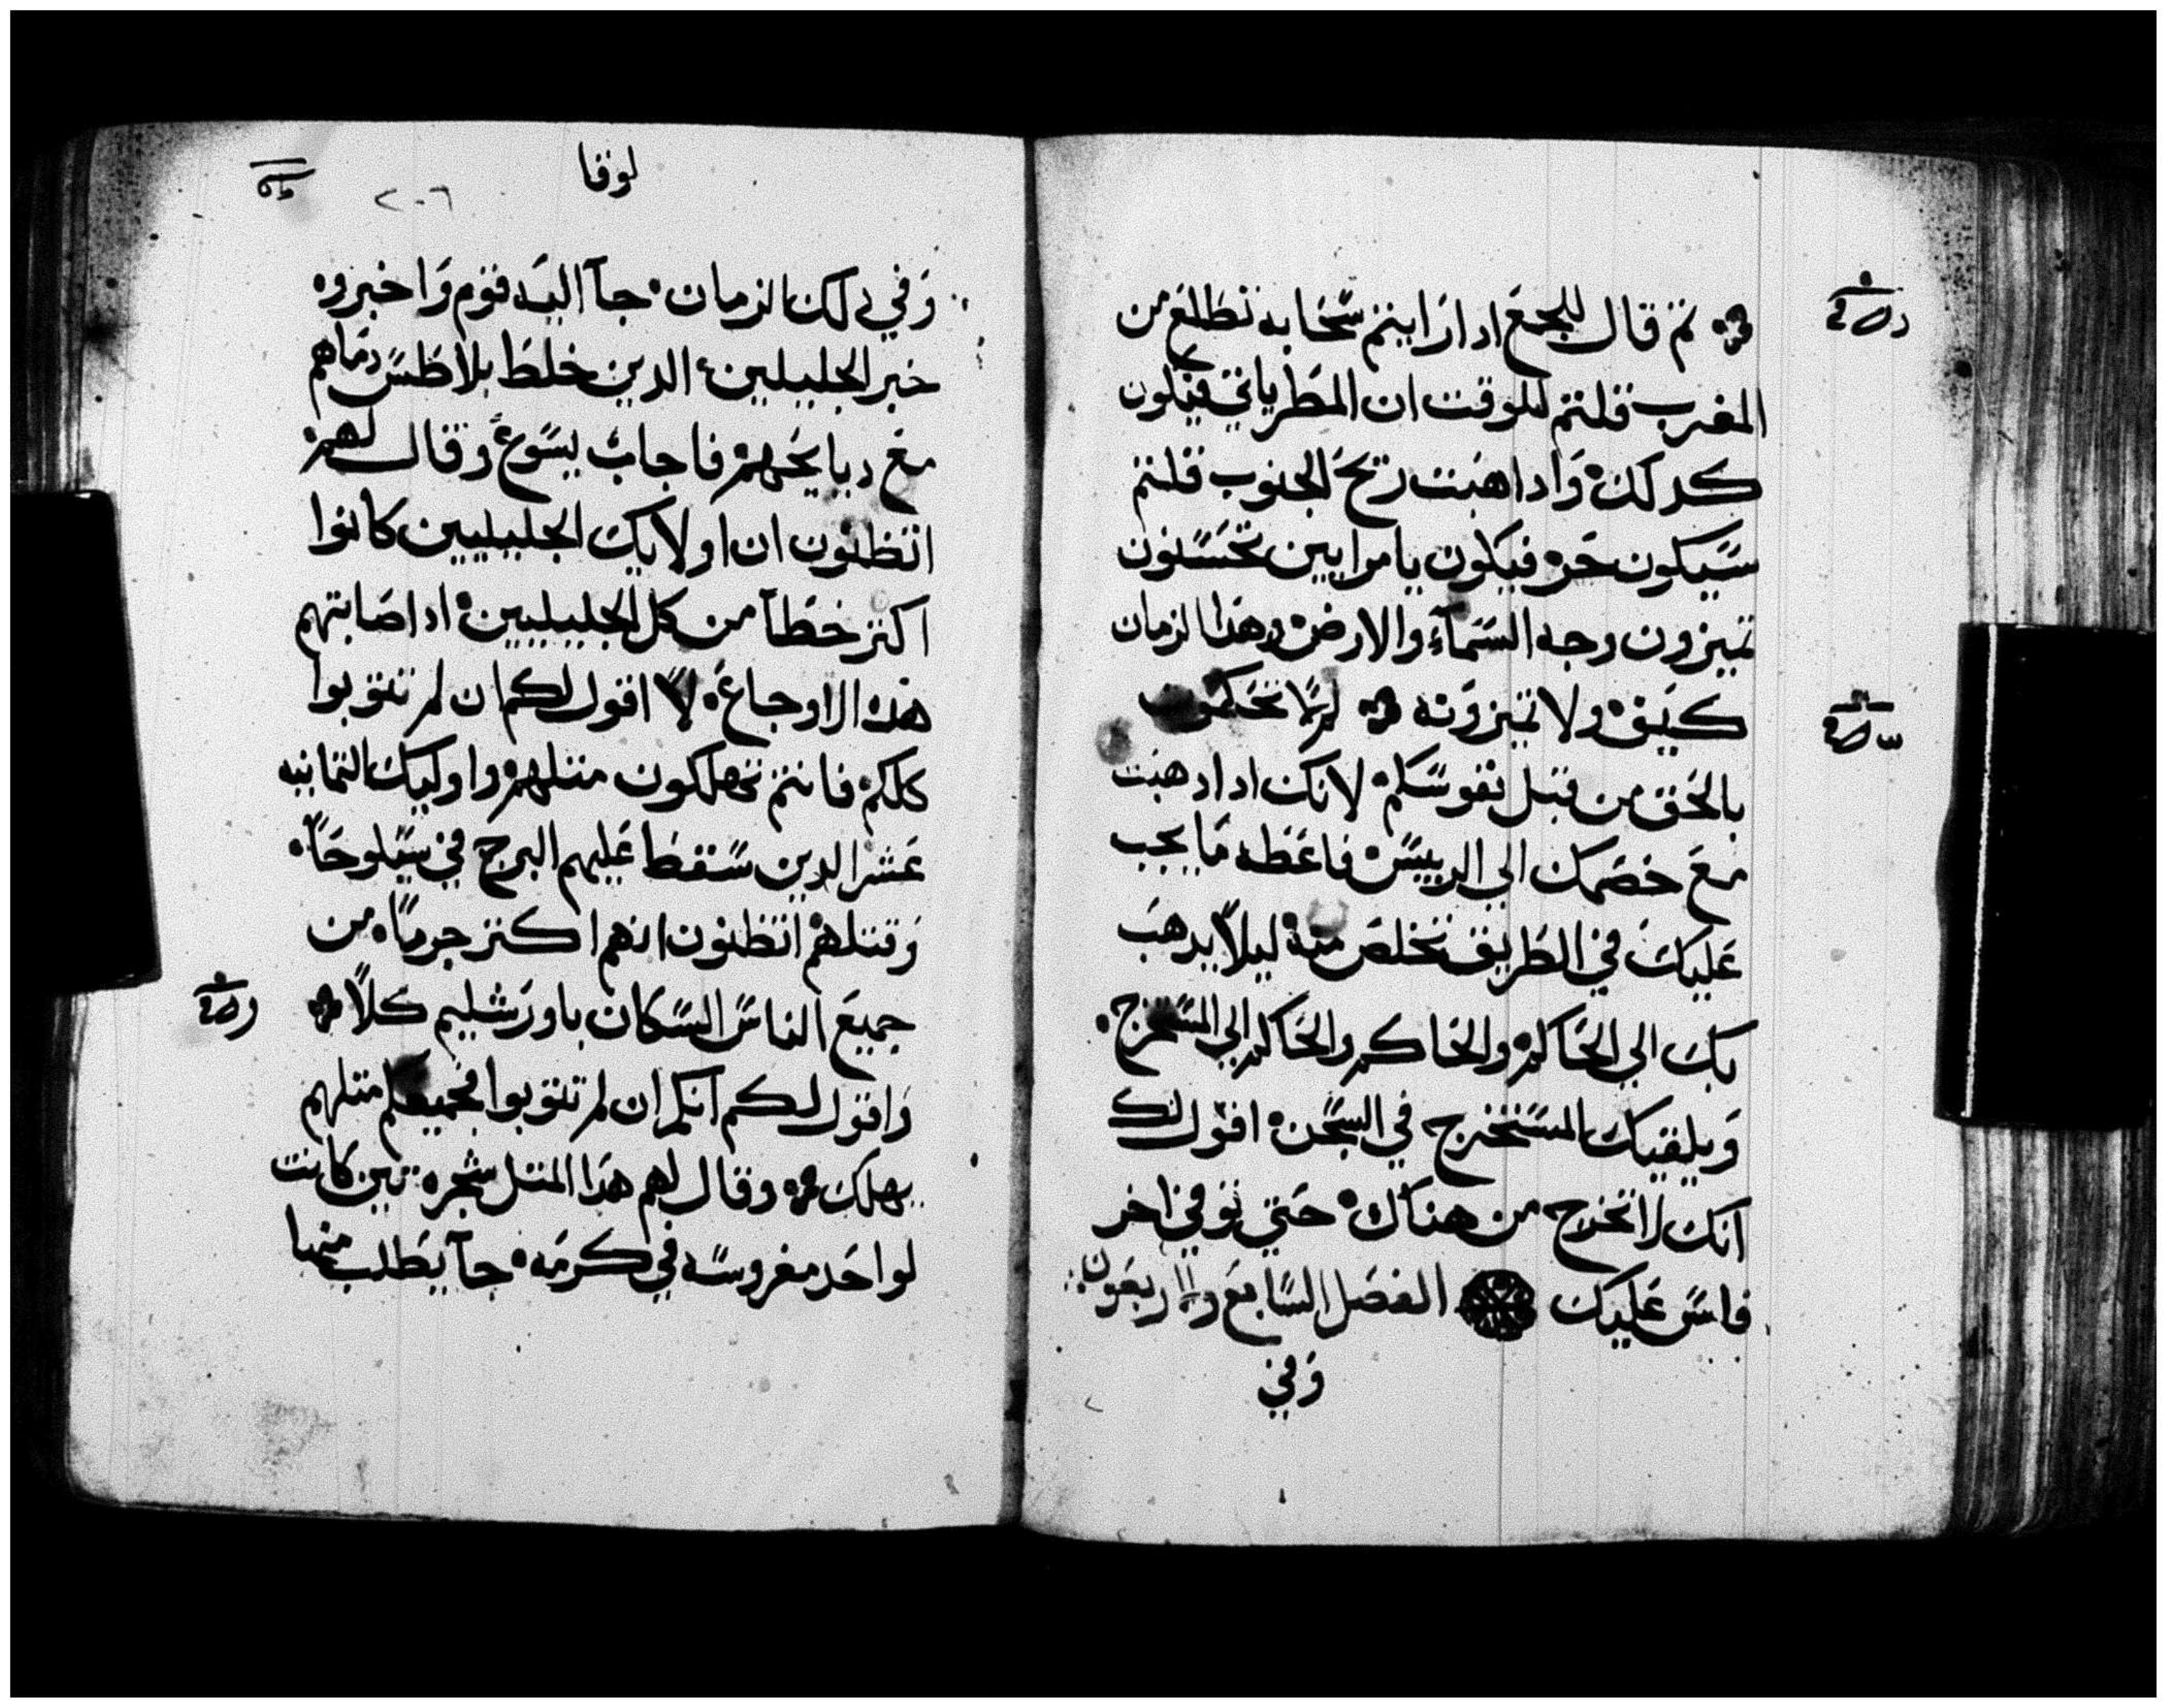 ثم قال للجمع ادا رايتم سحابه تطلع من
المغرب قلتم للوقت ان المطر ياتي فيكون
كدلك وادا هبت ريح الجنوب قلتم
سيكون حر فيكون يا مرايين تحسنون
تميزون وجه السمآء والارض وهدا الزمان
كيف ولا تميزونه لم لا تحكمون
بالحق من قبل نفوسكم لانك ادا دهبت
مع خصمك الي الرييس فاعطه ما يجب
عليك في الطريق تخلص منه ليلا يدهب
بك الي الحاكم والحاكم والحاكم الي المستخرج
ويلقيك المستخرج في السجن اقول لك
انك لا تخرج من هناك حتي توفي اخر
فلس عليك الفصل السابع والاربعون
وفي
لوقا
٢٠٦
وفي دلك الزمان جآ اليه قوم واخبروه
خبر الجليليين الدين خلط بلاطس دماهم
مع دبايحهم فاجاب يسوع وقال لهم
اتظنون ان اولايك الجليليين كانوا
اكتر خطآ من كل الجليليين اد اصابتهم
هده الاوجاع لا اقول لكم ان لم تتوبوا
كلكم فانتم تهلكون متلهم واوليك التمانيه
عشر الدين سقط عليهم البرج في سيلوحا
وقتلهم اتظنون انهم اكتر جرما من
جميع الناس السكان باورشليم كلا
واقول لكم انكم ان لم تتوبوا فجميعكم متلهم
يهلك وقال لهم هدا المتل شجره تين كانت
لواحد مغروسه في كرمه جآ يطلب منها